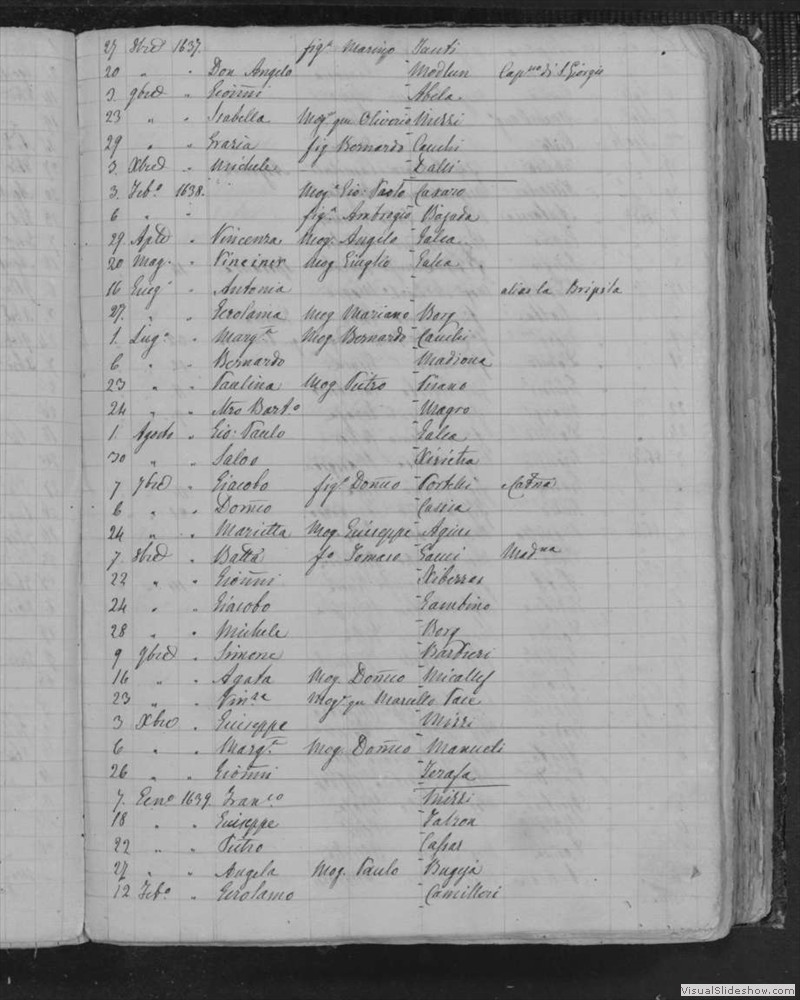 27 8bre 1637. figa Marino Fauti
20 " " Don Angelo Modlun Capno di S. Giorgio
3. 9bre " Gioñni Abela
23 " " Isabella Moge qm Oliverio Mizzi
29 " " Grazia fig Bernardo Cauchi
3. Xbre " Michele Dalli
3. Febo 1638. Moge Gio: Paolo Caxaro
6 " " figa Ambrogio Bajada
29 Aple " Vincenza Mog. Angelo Galea
20 Mag. " Mog Giuglio Galea
16 Giugo " Antonia alias la
27. " " Gerolama Mog Mariano Borg
1. Lugo " Margta Mog Bernardo Cauchi
6 " " Bernardo Madiona
23 " " Paulina Mog Pietro Pisano
24 " " Mro Barto Magro
1. Agosto " Gio: Paulo Galea
30 " " Salvo
7 7bre " Giacobo figo Domco Portelli
6 " " Domco Cassia
24 " " Marietta Mog Giuseppe Agius
7. 8bre " Batta fo Tomaso Gauci Madna
22 " " Gioñni Xiberras
24 " " Giacobo Gambino
28 " " Michele Borg
9 9bre " Simone Barbieri
16 " " Agata Mog Domco Micallef
23 " " Vinza Moge qm Marcello Pace
3 Xbre " Giuseppe Mizzi
6 " " Margta Mog Domco Manueli
26 " " Gioñni Ferafa
7. Geno 1639. Franco Mizzi
18 " " Giuseppe Falzon
22 " " Pietro Cassar
27 " " Angela Mog. Paulo Bugeja
12 Febo " Gerolamo Camilleri
VisualSlideshow.com